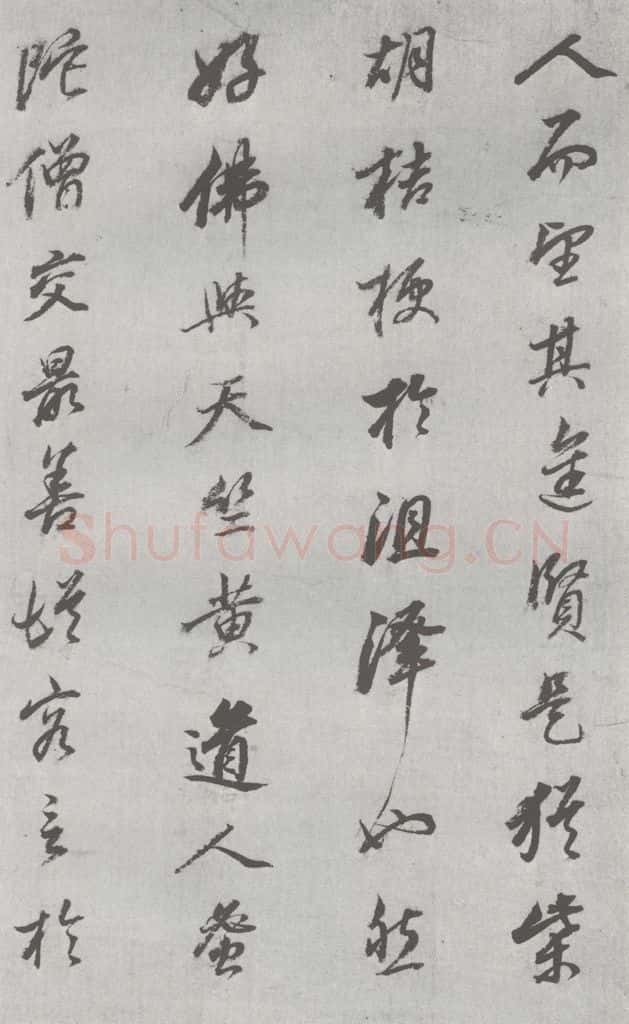 人而望其進賢是猶柴
胡桔梗於沮澤也然
好佛與天竺黃道人蚕
陀僧交最善嘗客言於
Shufawang.CN